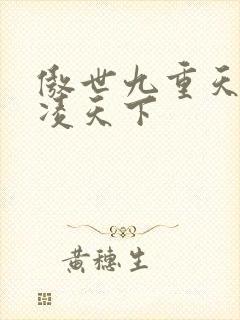 傲世九重天
凌天下
黄穗生